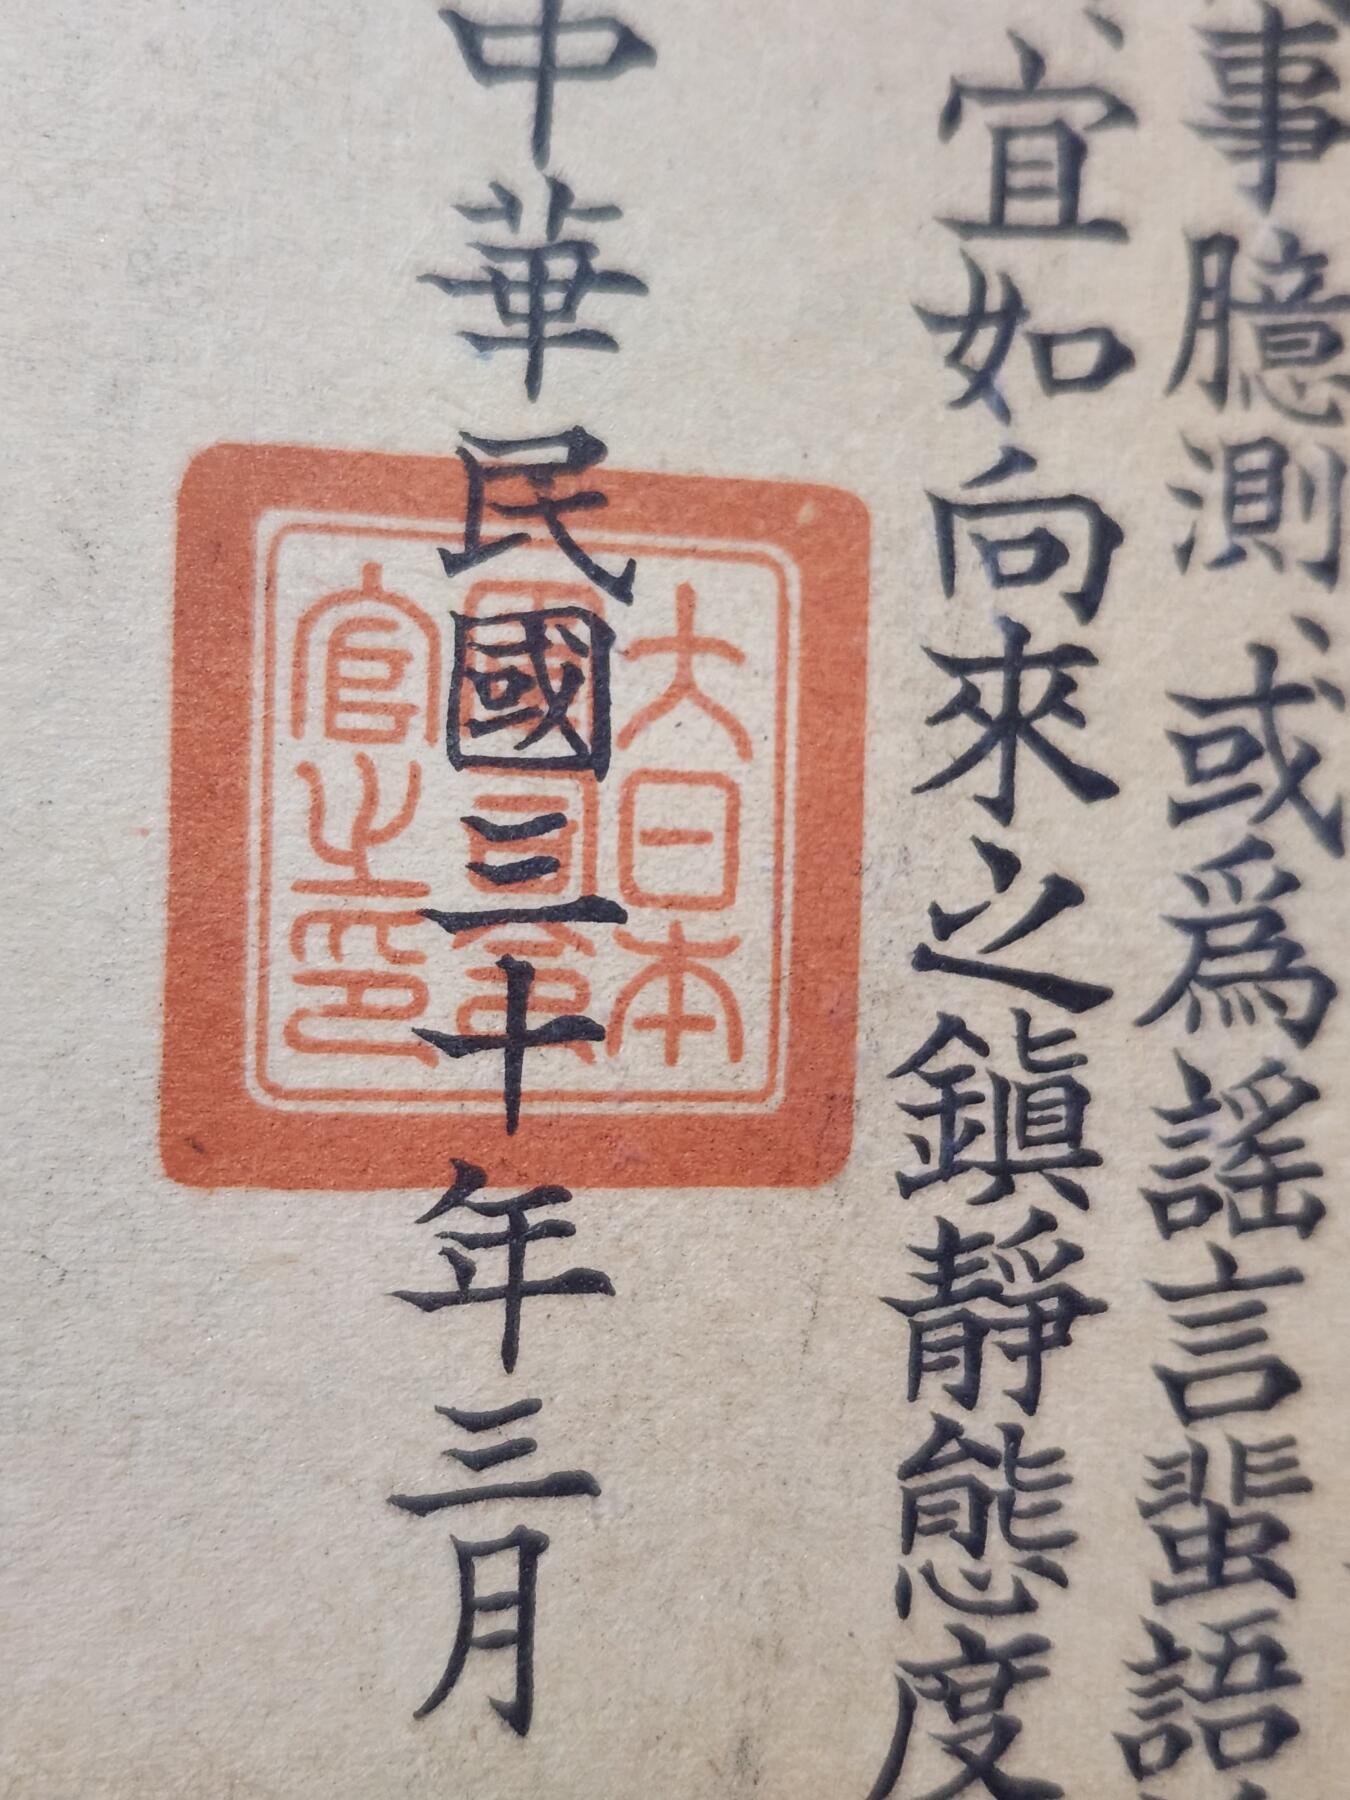 事臆測、或爲謠言蜚語
、宜如向來之鎭靜態度
中華民國三十年三月
大日本
國司令
官之印